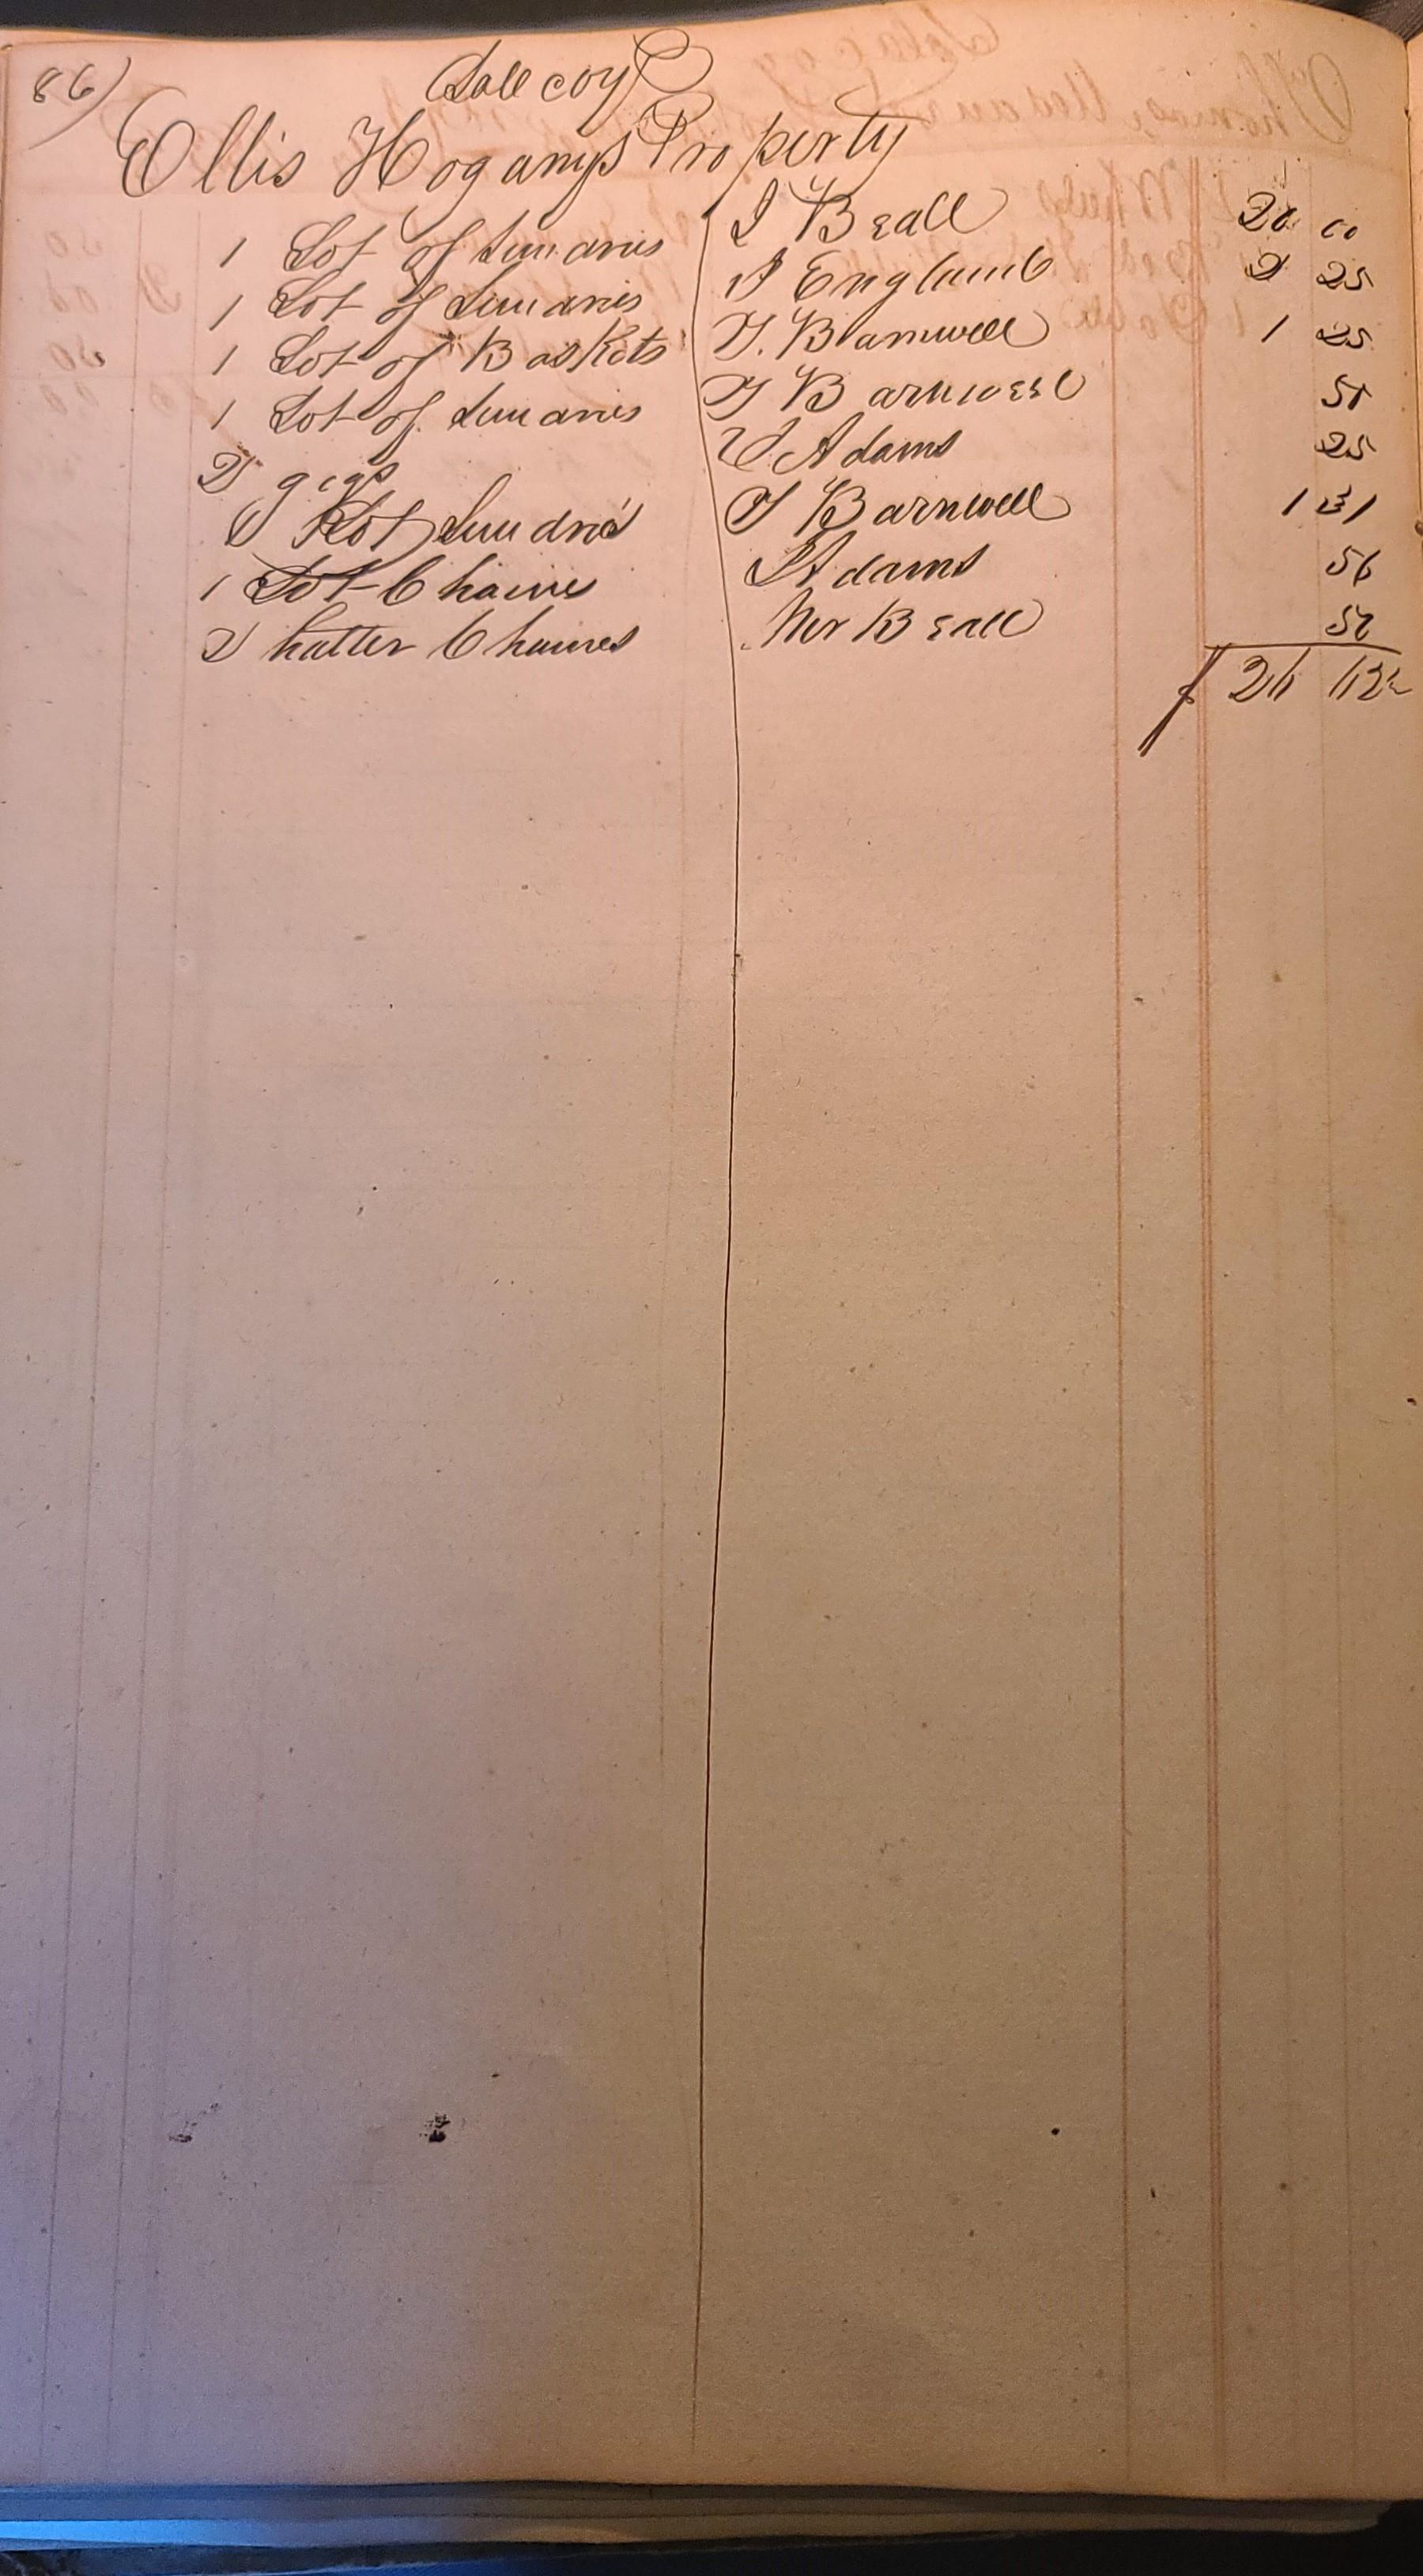 86)
Sale coy
Ellis Hogans Property
1 Lot of Sundries I Beall 20 00
1 Lot of Sundries I England 2 25
1 Lot of Baskets T. Barnwell 1 25
1 Lot of Sundries T Barnwell 50
2 gigs Adams 25
1 Lot Sundries T Barnwell 1 31
1 Lot Chaines Adams 56
2 halter Chaines Mr Beall 50
$ 26 62